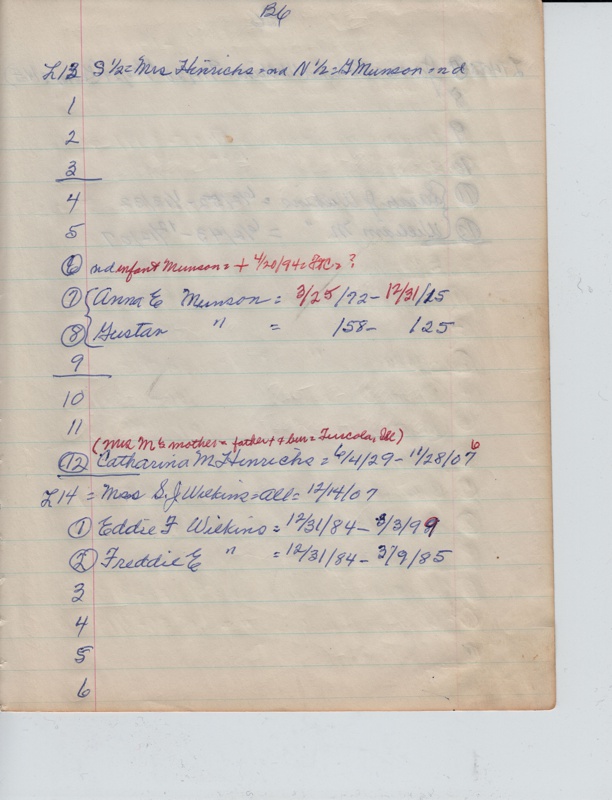 B6
L13 S 1/2 = Mrs Hinrichs = nd N 1/2 = G Munson = nd
1
2
3
4
5
6 nd infant Munson = + 4/20/94 = ?
7 Anna E Munson = 3/25/72 - 12/31/15
8 Gustav " = /58 - /25
9
10
11
(Mrs M's mother = father + bur = Tuscola, Ill)
12 Catharina M Hinrichs = 6/4/29 - 11/28/07 6
L14 = Mrs S. J Wilkins = all = 12/14/07
1 Eddie F Wilkins = 12/31/84 - 3/3/99
2 Freddie E " = 12/31/84 - 3/9/85
3
4
5
6